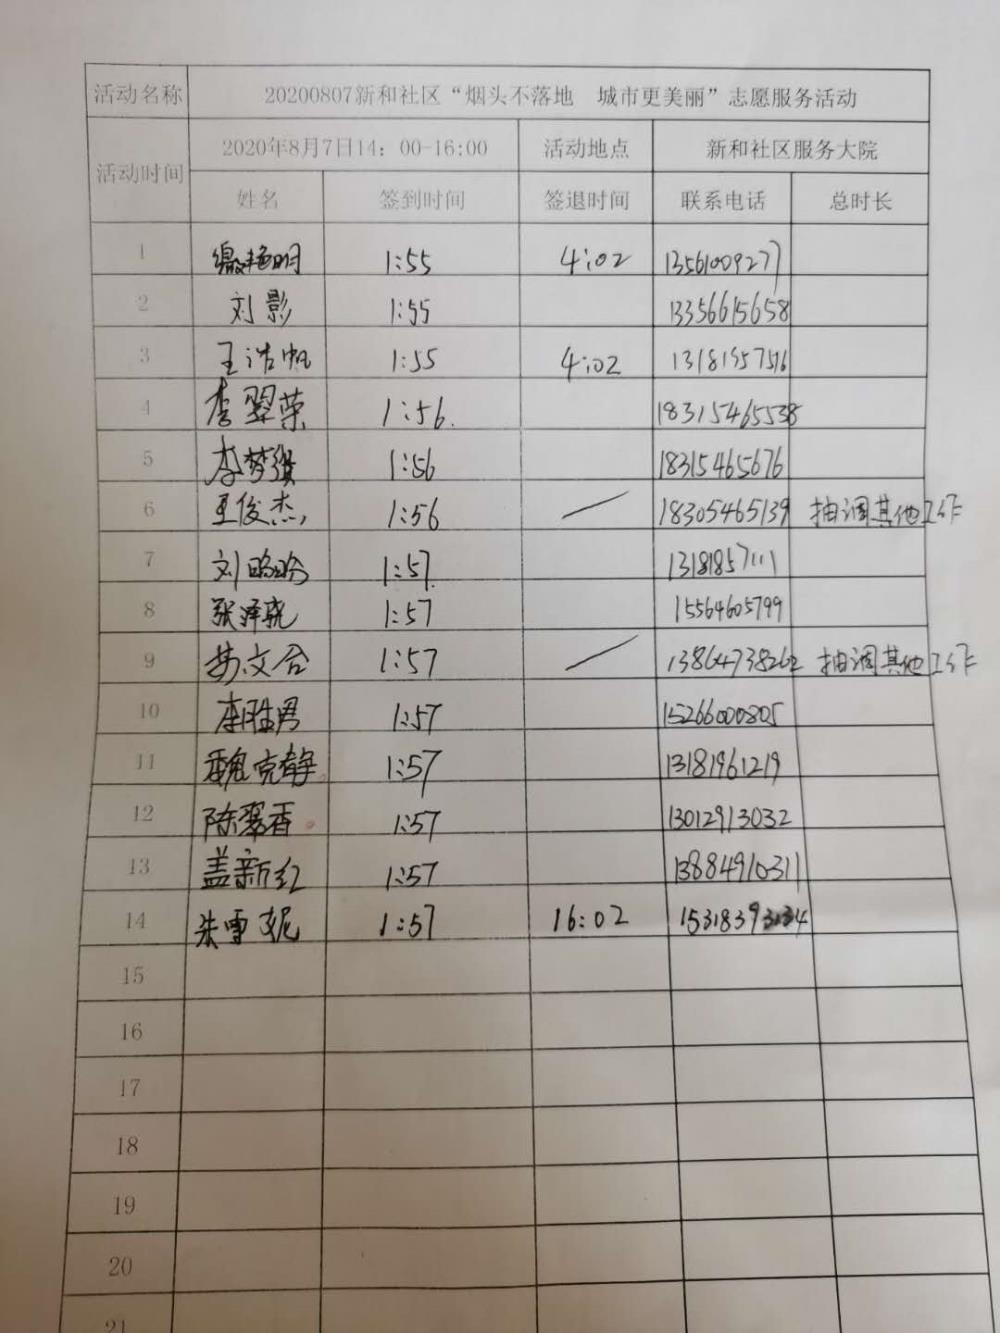 活动名称 20200807新和社区“烟头不落地 城市更美丽”志愿服务活动
活动时间 2020年8月7日14：00-16:00 活动地点 新和社区服务大院
姓名 签到时间 签退时间 联系电话 总时长
1 1:55 4:02 13561009277
2 刘影 1:55 13356615658
3 王浩帆 1:55 4:02
4 李翠荣 1:56. 18315465538
5 李梦 1:56 18315465676
6 王俊杰 1:56 18305465139 抽调其他工作
7 刘晗 1:57. 13181857111
8 张泽尧 1:57 15564605799
9 苏文合 1:57 13864738262 抽调其他工作
10 李胜男 1:57 15266000805
11 魏克静 1:57 13181961219
12 陈翠香 1:57 13012913032
13 盖新红 1:57 13884910311
14 朱雪妮 1:57 16:02
15
16
17
18
19
20
21